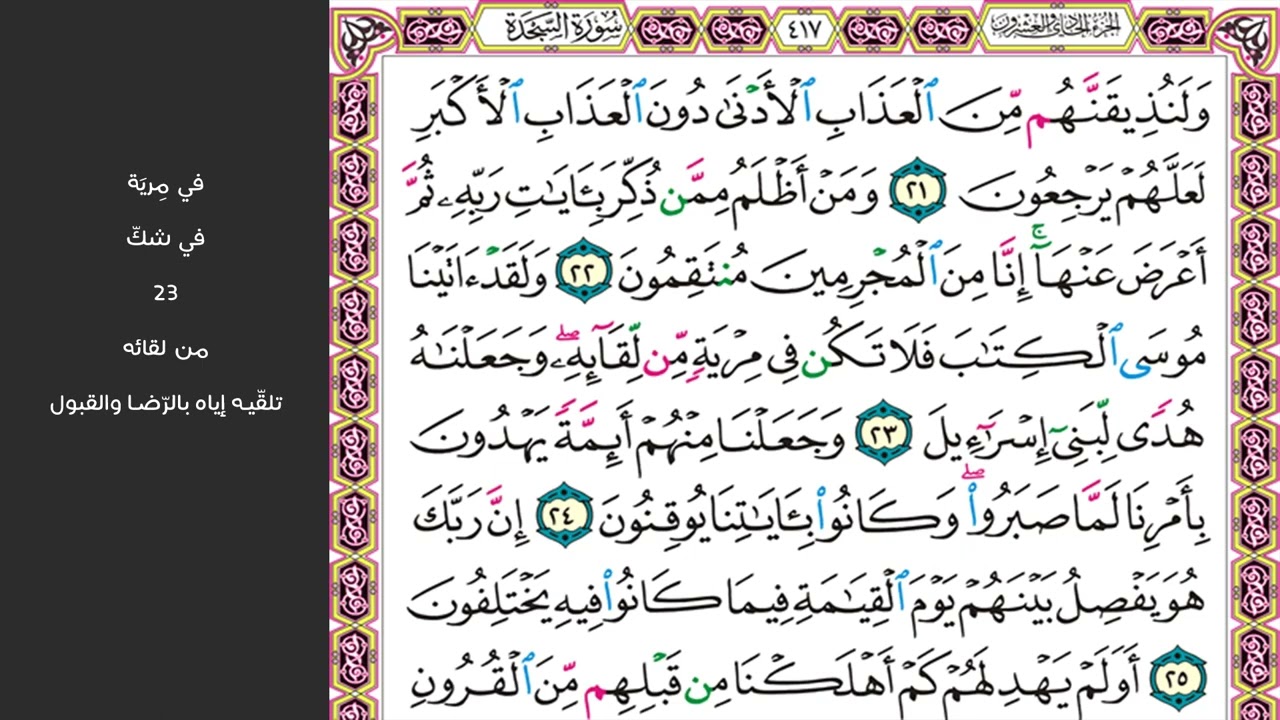 الجزء الحادي والعشرون
٤١٧
سورة السجدة
وَلَنُذِيقَنَّهُم مِّنَ ٱلْعَذَابِ ٱلْأَدْنَىٰ دُونَ ٱلْعَذَابِ ٱلْأَكْبَرِ
لَعَلَّهُمْ يَرْجِعُونَ ٢١ وَمَنْ أَظْلَمُ مِمَّن ذُكِّرَ بِـَٔايَـٰتِ رَبِّهِۦ ثُمَّ
أَعْرَضَ عَنْهَآ ۚ إِنَّا مِنَ ٱلْمُجْرِمِينَ مُنتَقِمُونَ ٢٢ وَلَقَدْ ءَاتَيْنَا
مُوسَى ٱلْكِتَـٰبَ فَلَا تَكُن فِى مِرْيَةٍ مِّن لِّقَآئِهِۦ ۖ وَجَعَلْنَـٰهُ
هُدًى لِّبَنِىٓ إِسْرَٰٓءِيلَ ٢٣ وَجَعَلْنَا مِنْهُمْ أَئِمَّةً يَهْدُونَ
بِأَمْرِنَا لَمَّا صَبَرُوا۟ ۖ وَكَانُوا۟ بِـَٔايَـٰتِنَا يُوقِنُونَ ٢٤ إِنَّ رَبَّكَ
هُوَ يَفْصِلُ بَيْنَهُمْ يَوْمَ ٱلْقِيَـٰمَةِ فِيمَا كَانُوا۟ فِيهِ يَخْتَلِفُونَ
٢٥ أَوَلَمْ يَهْدِ لَهُمْ كَمْ أَهْلَكْنَا مِن قَبْلِهِم مِّنَ ٱلْقُرُونِ
في مِريَة
في شكّ
23
من لقائه
تلقّيه إياه بالرّضا والقبول